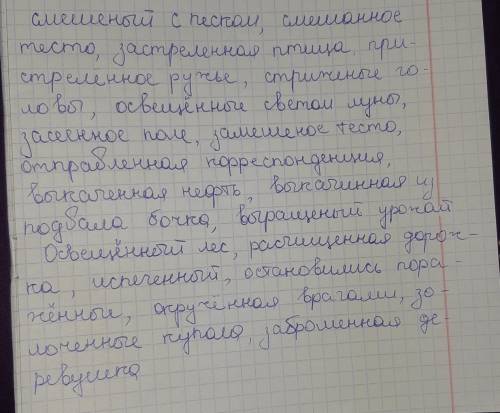 смешеный с песком, смешанное
тесто, застреленная птица, при-
стреленное ружье, стриженые го-
ловы, освещённые светом луны,
засеенное поле, замешеное тесто,
отправленная корреспонденция,
выкаченная нефть, выкатинная из
подвала бочка, выращеный урожай
Освещённый лес, расчищенная дорож-
ка, испеченный, остановились пора-
жённые, окручённая врагами, зо-
лоченные купала, заброшенная де-
ревушка